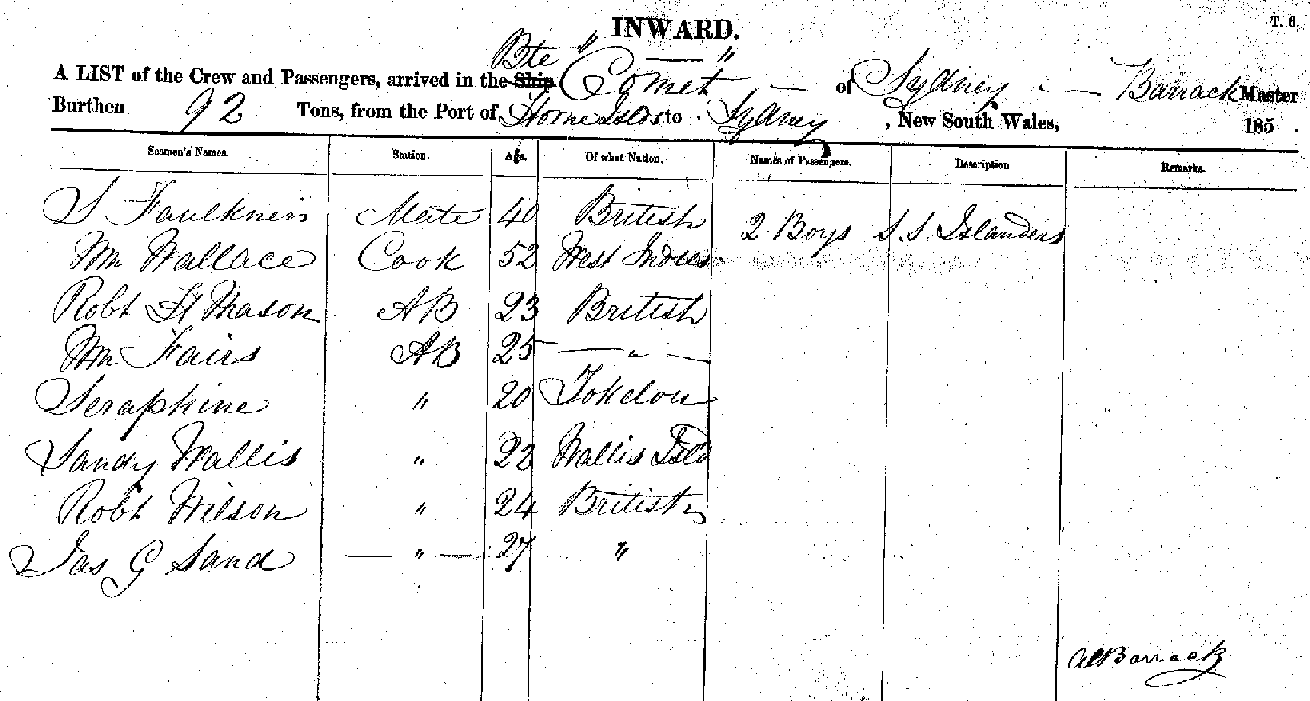 T. 6.
INWARD.
Bte " "
A LIST of the Crew and Passengers, arrived in the Ship Comet of Sydney Barrack Master
Burthen 92 Tons, from the Port of Horne Isles to Sydney, New South Wales, 185
Seamen's Names. Station. Age. Of what Nation. Names of Passengers. Description Remarks.
S Faulkner Mate 40 British 2 Boys S. S Islanders
Wm Wallace Cook 52 West Indies
Robt Mason AB 23 British
Wm Fairs AB 25 — " —
Seraphine " 20 Tokelou
Sandy Wallis " 22 Wallis Isld
Robt Wilson " 24 British
Jas G Sand — " — 27 "
Barrack